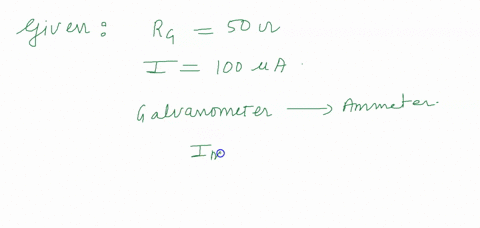 Given : R_G = 50 Ω
I = 100 μA .
Galvanometer → Ammeter.
I_m